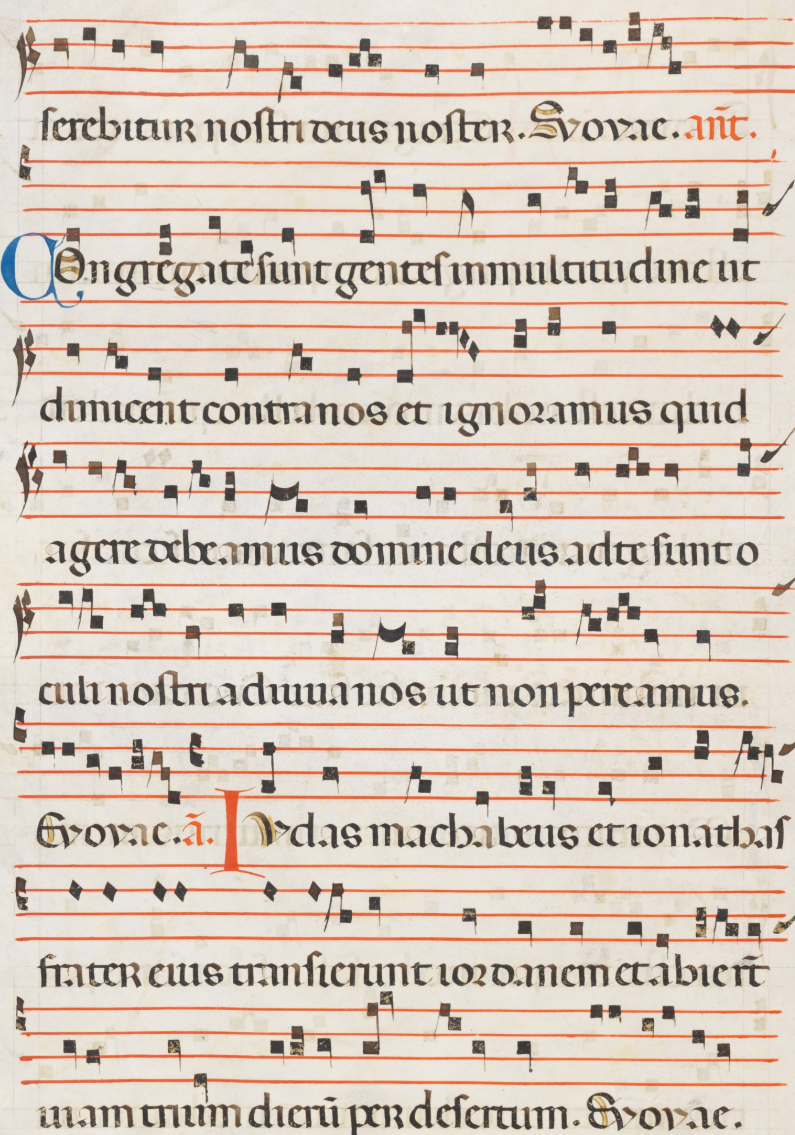 serebitur nostri deus noster. Evovae. añt.
Congregate sunt gentes in multitudine ut
dimicent contra nos et ignoramus quid
agere debeamus domine deus ad te sunt o
culi nostri adiuva nos ut non pereamus.
Evovae. ã. Iudas machabeus et ionathas
frater eius transierunt iordanem et abierr̃t
uiam trium dierũ per desertum. Evovae.